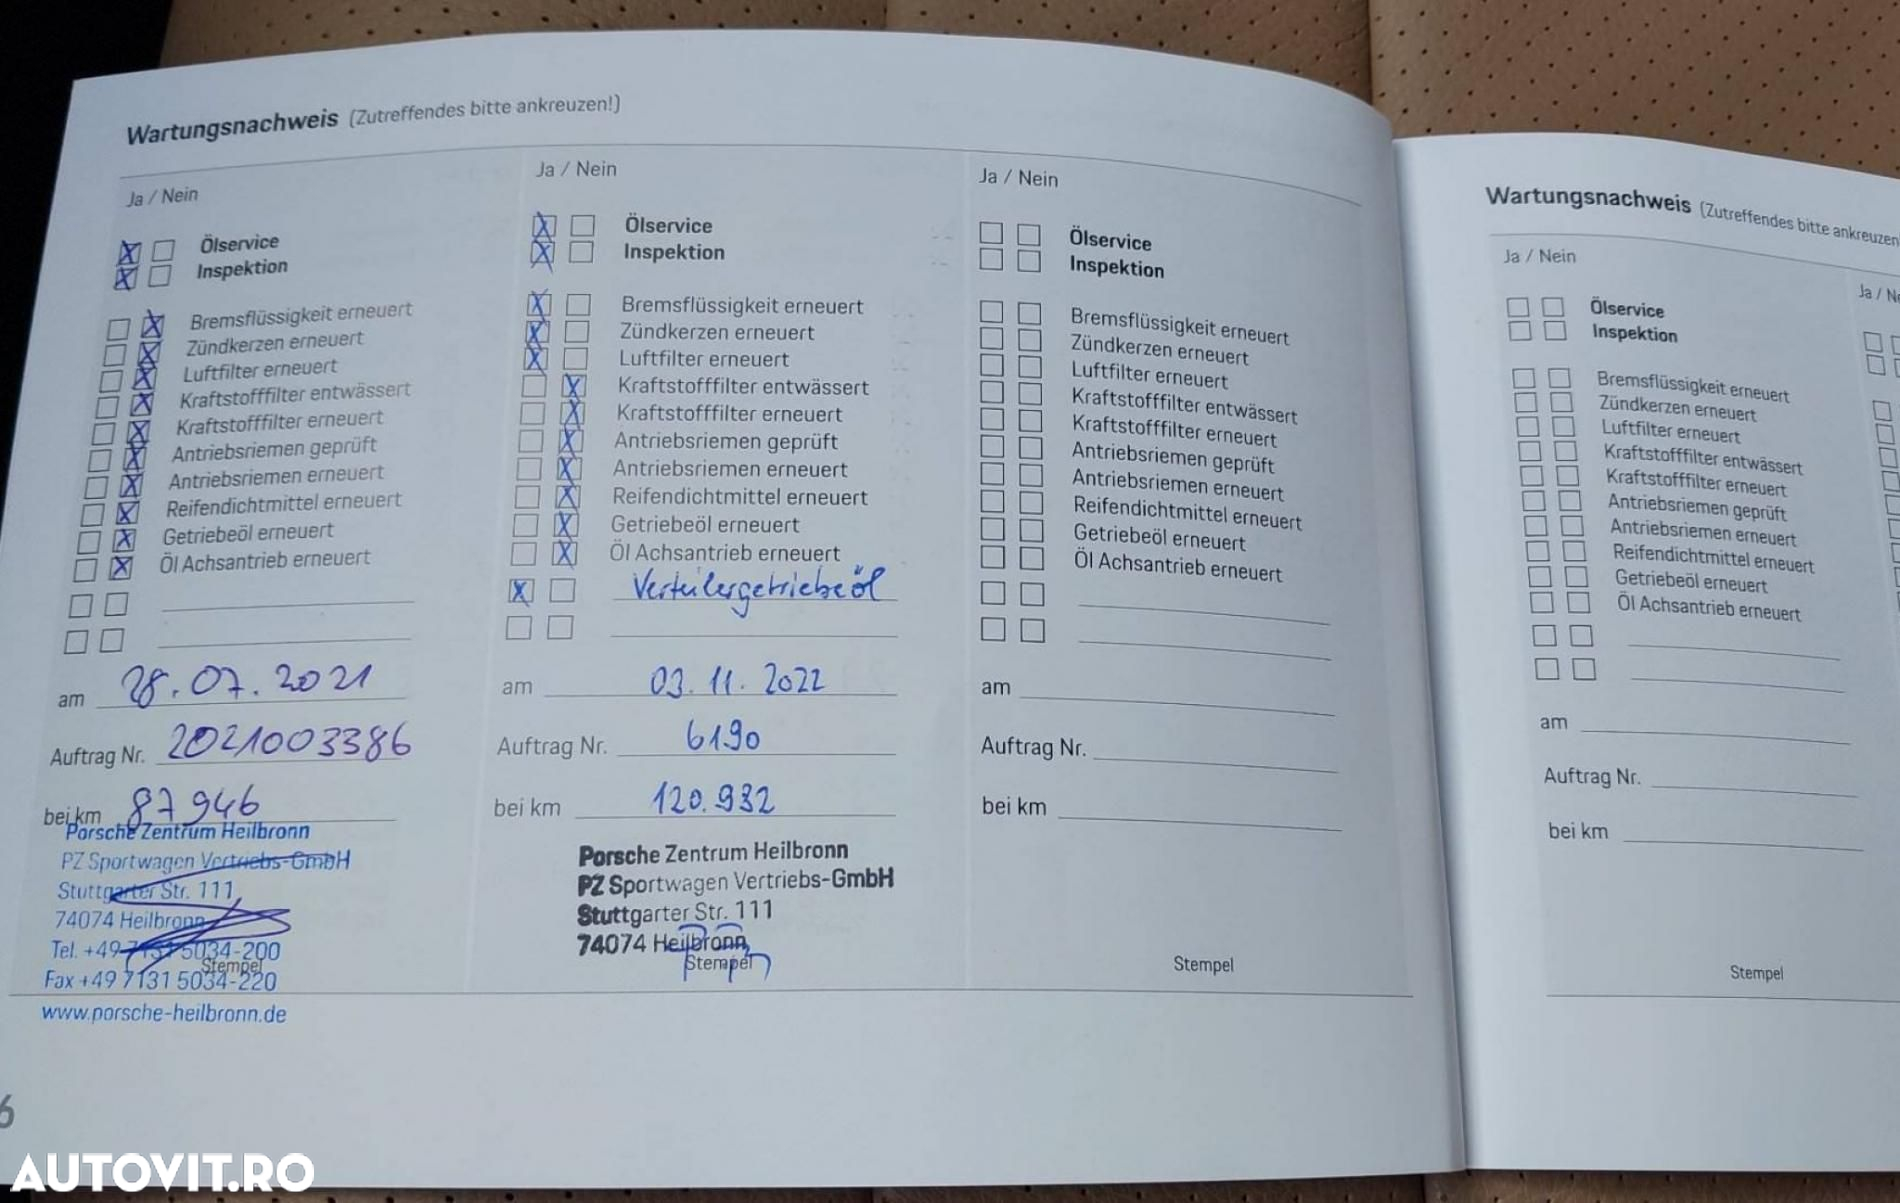 Wartungsnachweis (Zutreffendes bitte ankreuzen!)
Ja / Nein
Ölservice
Inspektion
Bremsflüssigkeit erneuert
Zündkerzen erneuert
Luftfilter erneuert
Kraftstofffilter entwässert
Kraftstofffilter erneuert
Antriebsriemen geprüft
Antriebsriemen erneuert
Reifendichtmittel erneuert
Getriebeöl erneuert
Öl Achsantrieb erneuert
am 28.07.2021
Auftrag Nr. 2021003386
bei km 87946
Porsche Zentrum Heilbronn
PZ Sportwagen Vertriebs-GmbH
Stuttgarter Str. 111
74074 Heilbronn
Tel. +49 7131 5034-200
Stempel
Fax +49 7131 5034-220
www.porsche-heilbronn.de
Ja / Nein
Ölservice
Inspektion
Bremsflüssigkeit erneuert
Zündkerzen erneuert
Luftfilter erneuert
Kraftstofffilter entwässert
Kraftstofffilter erneuert
Antriebsriemen geprüft
Antriebsriemen erneuert
Reifendichtmittel erneuert
Getriebeöl erneuert
Öl Achsantrieb erneuert
Verteilergetriebeöl
am 03.11.2022
Auftrag Nr. 6190
bei km 120.932
Porsche Zentrum Heilbronn
PZ Sportwagen Vertriebs-GmbH
Stuttgarter Str. 111
74074 Heilbronn
Stempel
Ja / Nein
Ölservice
Inspektion
Bremsflüssigkeit erneuert
Zündkerzen erneuert
Luftfilter erneuert
Kraftstofffilter entwässert
Kraftstofffilter erneuert
Antriebsriemen geprüft
Antriebsriemen erneuert
Reifendichtmittel erneuert
Getriebeöl erneuert
Öl Achsantrieb erneuert
am
Auftrag Nr.
bei km
Stempel
6
Wartungsnachweis (Zutreffendes bitte ankreuzen
Ja / Nein
Ölservice
Inspektion
Bremsflüssigkeit erneuert
Zündkerzen erneuert
Luftfilter erneuert
Kraftstofffilter entwässert
Kraftstofffilter erneuert
Antriebsriemen geprüft
Antriebsriemen erneuert
Reifendichtmittel erneuert
Getriebeöl erneuert
Öl Achsantrieb erneuert
am
Auftrag Nr.
bei km
Stempel
Ja / Ne
AUTOVIT.RO